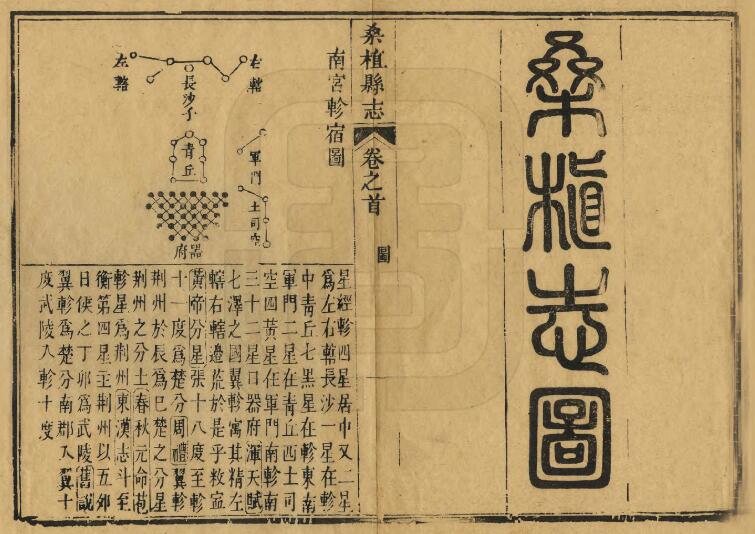 桑植志圖
桑植縣志
卷之首
圖
南宮軫宿圖
右轄
左轄
長沙子
青丘
軍門
土司空
器府
星經軫四星居中又二星
為左右轄長沙一星在軫
中青丘七黑星在軫東南
軍門二星在青丘西土司
空四黃星在軍門南軫南
三十二星曰器府渾天賦
七澤之國翼軫寓其精左
轄右轄邉荒於是乎敉寍
黃帝分星張十八度至軫
十一度為楚分周禮翼軫
荆州於辰為巳楚之分星
荆州之分土春秋元命苞
軫星為荆州東漢志斗至
衡第四星主荆州以五夘
日候之丁卯為武陵舊説
翼軫為楚分南郡入翼十
度武陵入軫十度